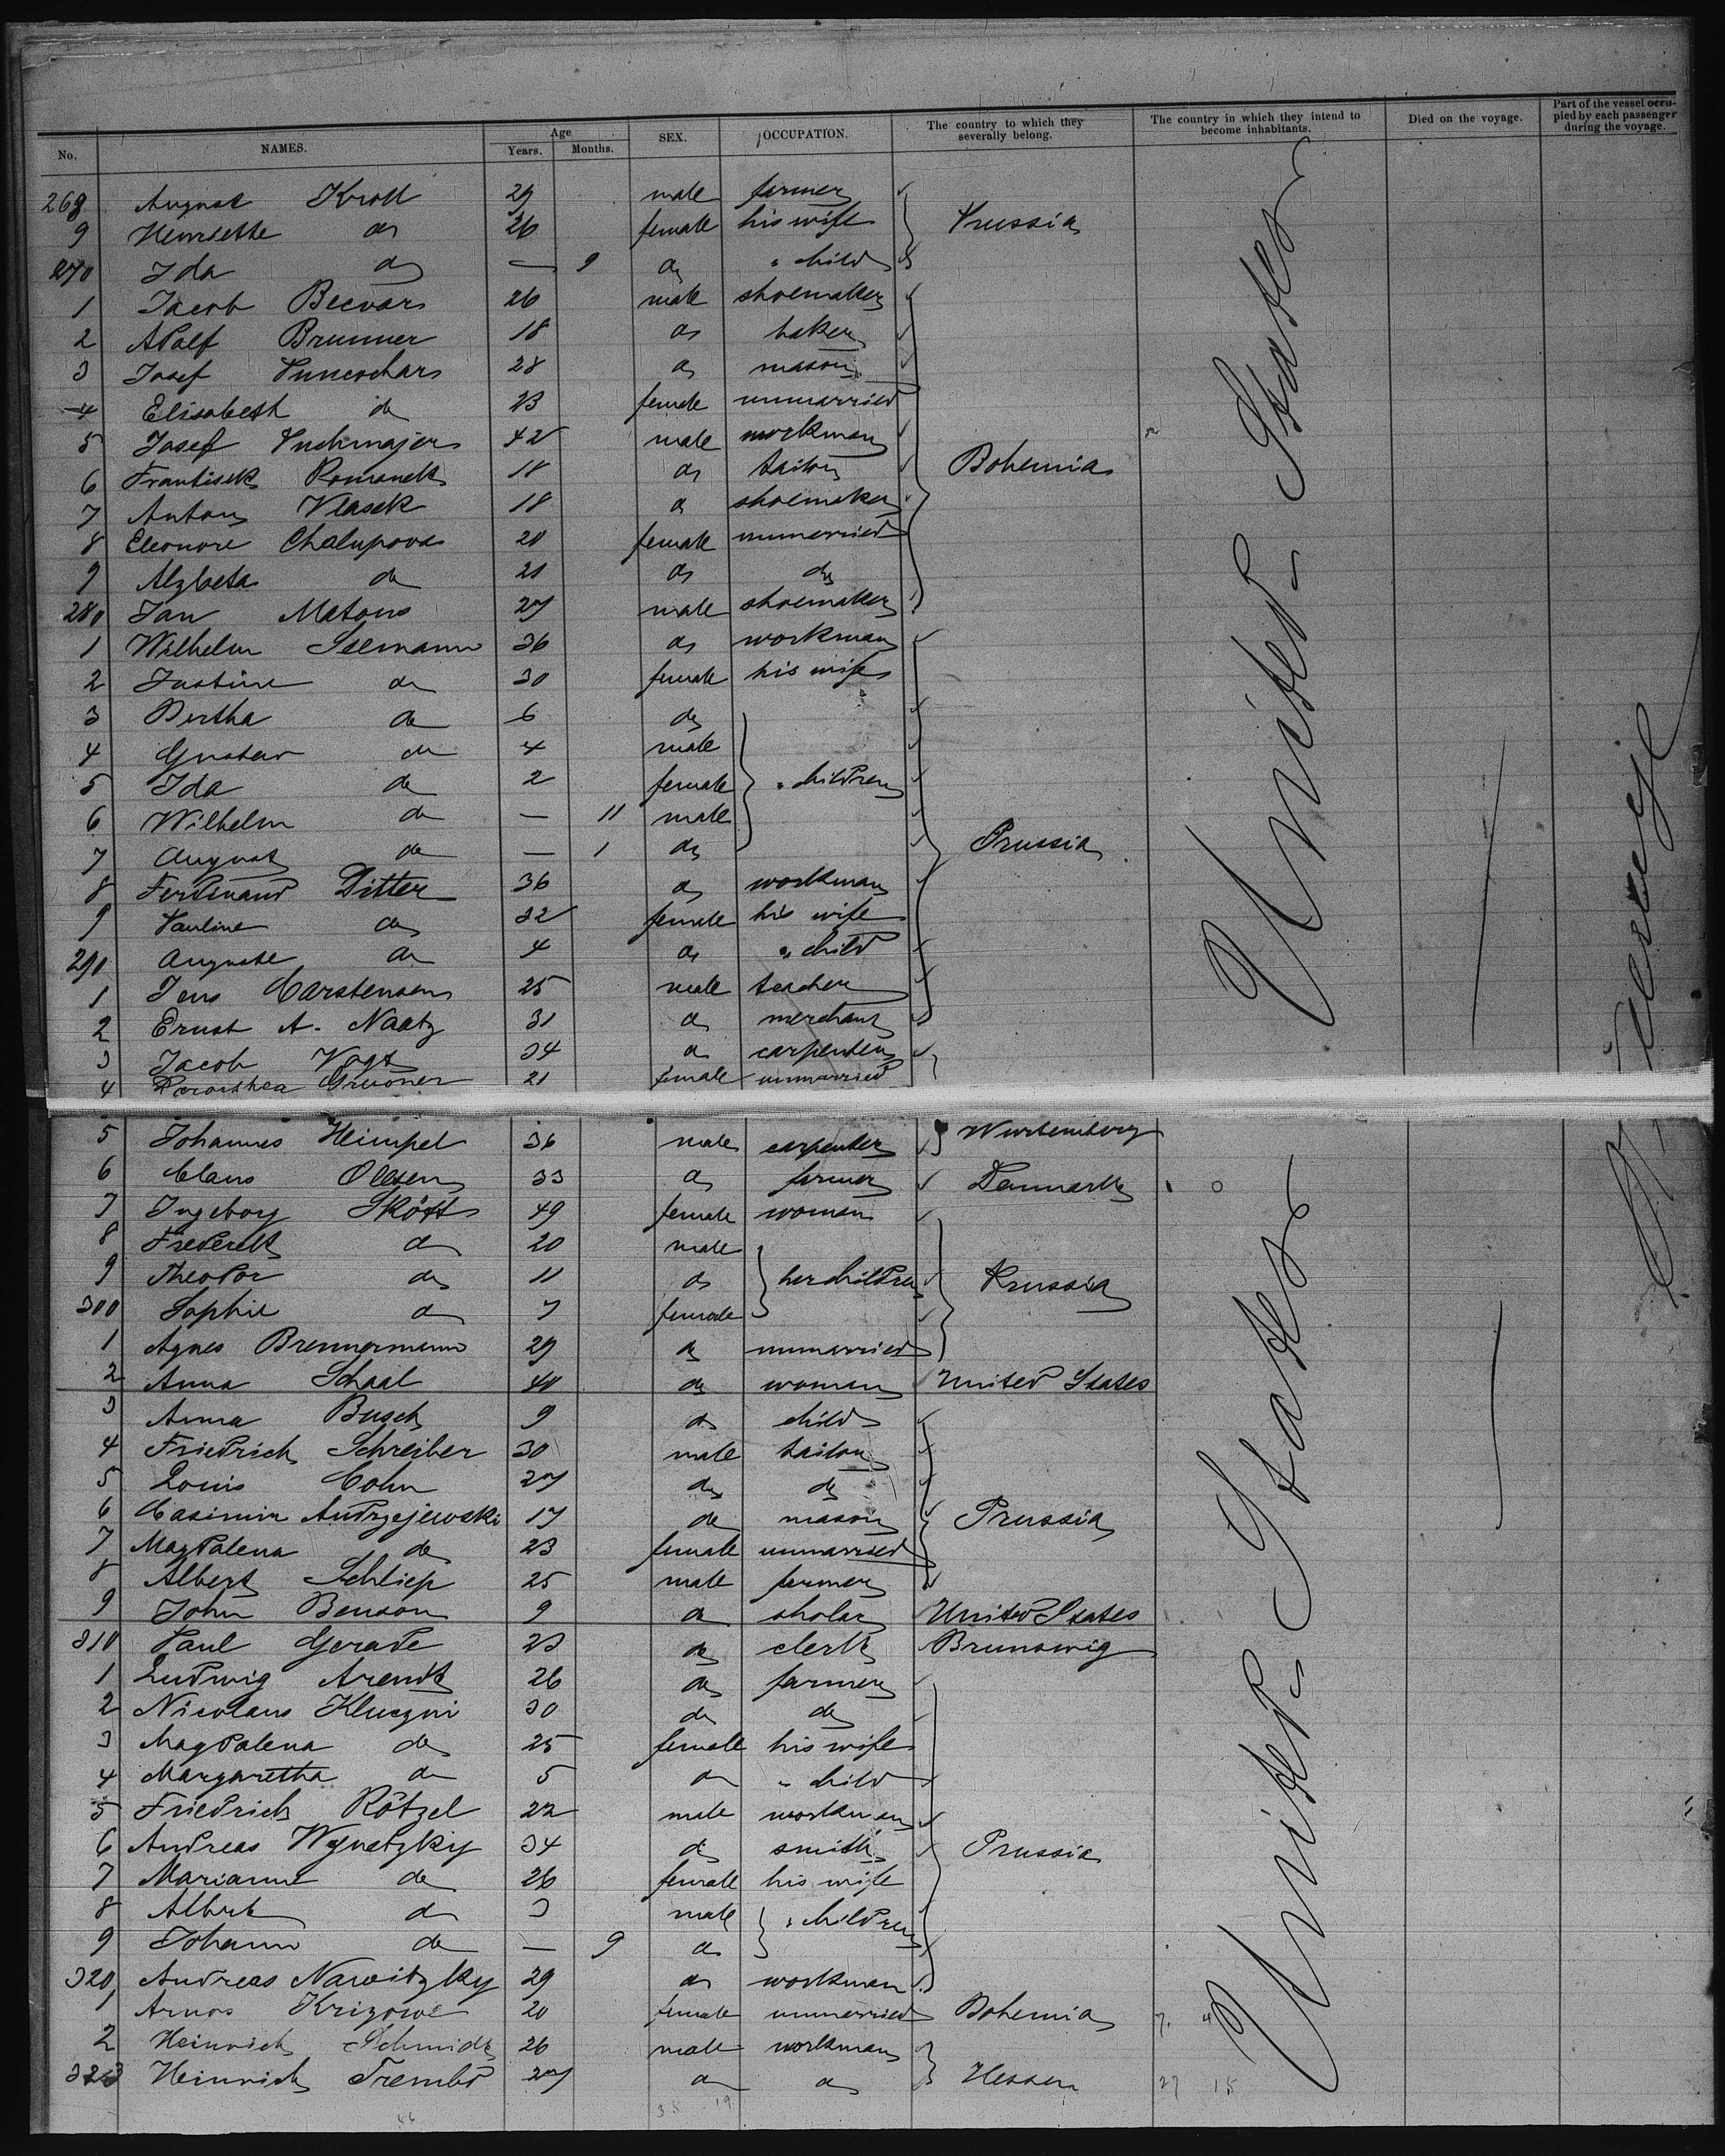 No. NAMES. Age Years. Months. SEX. OCCUPATION. The country to which they severally belong. The country in which they intend to become inhabitants. Died on the voyage. Part of the vessel occupied by each passenger during the voyage.
268 August Kroll 29 male farmer
9 Henriette do 26 female his wife Prussia
270 Ida do — 9 do " child
1 Jacob Becvar 26 male shoemaker
2 Adolf Brunner 18 do baker
3 Josef 28 do mason
4 Elisabeth do 23 female unmarried
5 Josef Suchmajer 42 male workman
6 Frantisek Romanek 18 do tailor Bohemia
7 Anton Vlasek 18 do shoemaker
8 Eleonore Chalupova 20 female unmarried
9 Alzbeta do 21 do do
280 Jan Matous 27 male shoemaker
1 Wilhelm Seemann 36 do workman
2 Justine do 30 female his wife
3 Bertha do 6 do
4 Gustav do 4 male
5 Ida do 2 female " children
6 Wilhelm do — 11 male
7 August do — 1 do Prussia
8 Ferdinand Ditter 36 do workman
9 Pauline do 32 female his wife
290 Auguste do 4 do " child
1 Jens Carstensen 25 male teacher
2 Ernst A. Naatz 31 do merchant
3 Jacob Vogt 34 do carpenter
4 Dorothea 21 female unmarried
5 Johannes Heimpel 36 male carpenter Wurtemberg
6 Claus Ollsen 33 do farmer Denmark
7 Ingeborg Skött 49 female woman
8 Frederik do 20 male
9 Theodor do 11 do her children Prussia
300 Sophie do 7 female
1 Agnes Brennermann 29 do unmarried
2 Anna Schaal 40 do woman United States
3 Anna Busch 9 do child
4 Friedrich Schreiber 30 male tailor
5 Louis Cohn 27 do do
6 Casimir Andrzejewski 17 do mason Prussia
7 Magdalena do 23 female unmarried
8 Albert Schliep 25 male farmer
9 John Benson 9 do sholar United States
310 Paul Gerade 23 do clerk Brunswig
1 Ludwig Arendt 26 do farmer
2 Nicolaus Kluczni 30 do do
3 Magdalena do 25 female his wife
4 Margaretha do 5 do " child
5 Friedrich Rötzel 22 male workman
6 Andreas Wynetzky 34 do smith Prussia
7 Marianne do 26 female his wife
8 Albert do 3 male " children
9 Johann do — 9 do
320 Andreas Nawitzky 29 do workman
1 Krizowe 20 female unmarried Bohemia
2 Heinrich Schmidt 26 male workman
323 Heinrich Trembt 27 do do Hessen
United States
United States